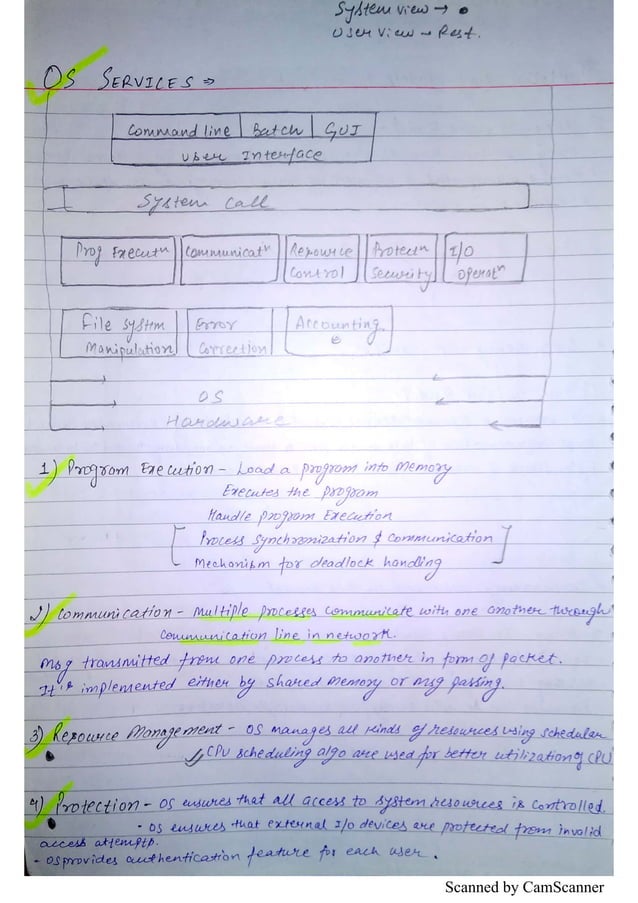 System view → •
User view → Rest.
OS SERVICES ⇒
Command line | Batch | GUI
User Interface
System Call
Prog Executn Communicatn Resource Protectn I/O
Control Security Operatn
File System Error Accounting
Manipulation Correction
OS
Hardware
1) Program Execution - Load a program into Memory
Executes the program
Handle program Execution
[ Process Synchronization & Communication ]
Mechanism for deadlock handling
2) Communication - Multiple processes communicate with one another through
communication line in network.
Msg transmitted from one process to another in form of packet.
It is implemented either by shared memory or msg passing.
3) Resource Management - OS manages all kinds of resources using schedular
CPU scheduling algo are used for better utilization of CPU
4) Protection - OS ensures that all access to system resources is controlled.
- OS ensures that external I/o devices are protected from invalid
access attempts.
- OS provides authentication feature for each user.
Scanned by CamScanner